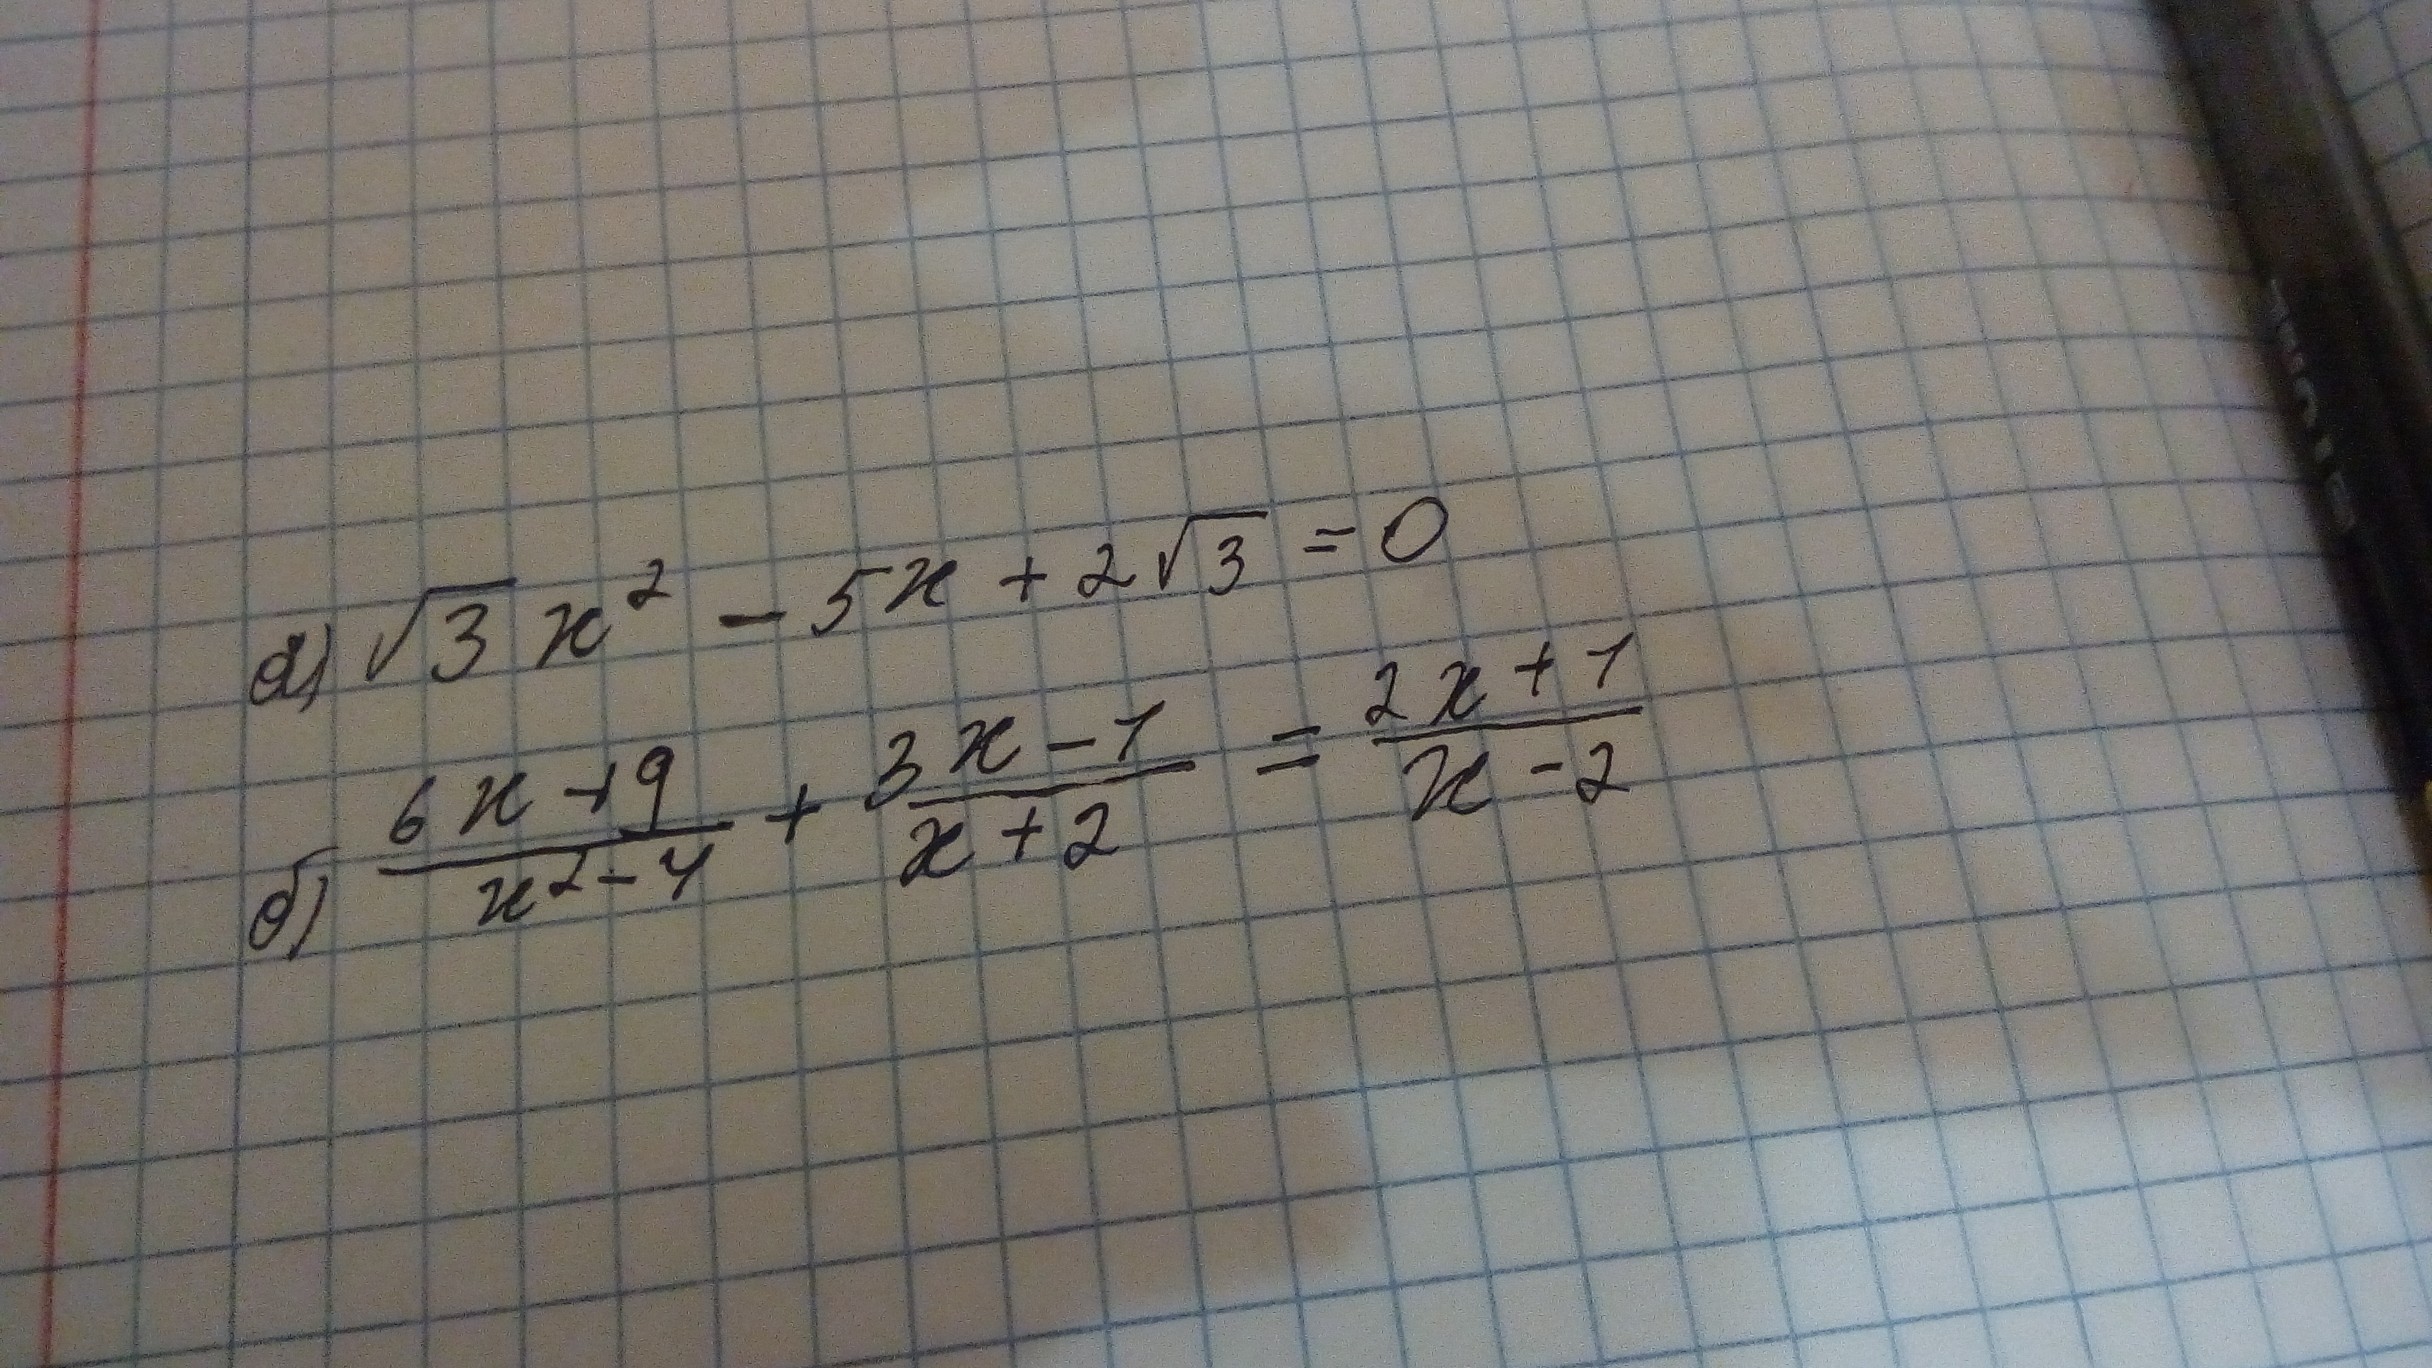 а) √3 x² - 5x + 2√3 = 0
б) (6x + 9)/(x² - 4) + (3x - 1)/(x + 2) = (2x + 1)/(x - 2)